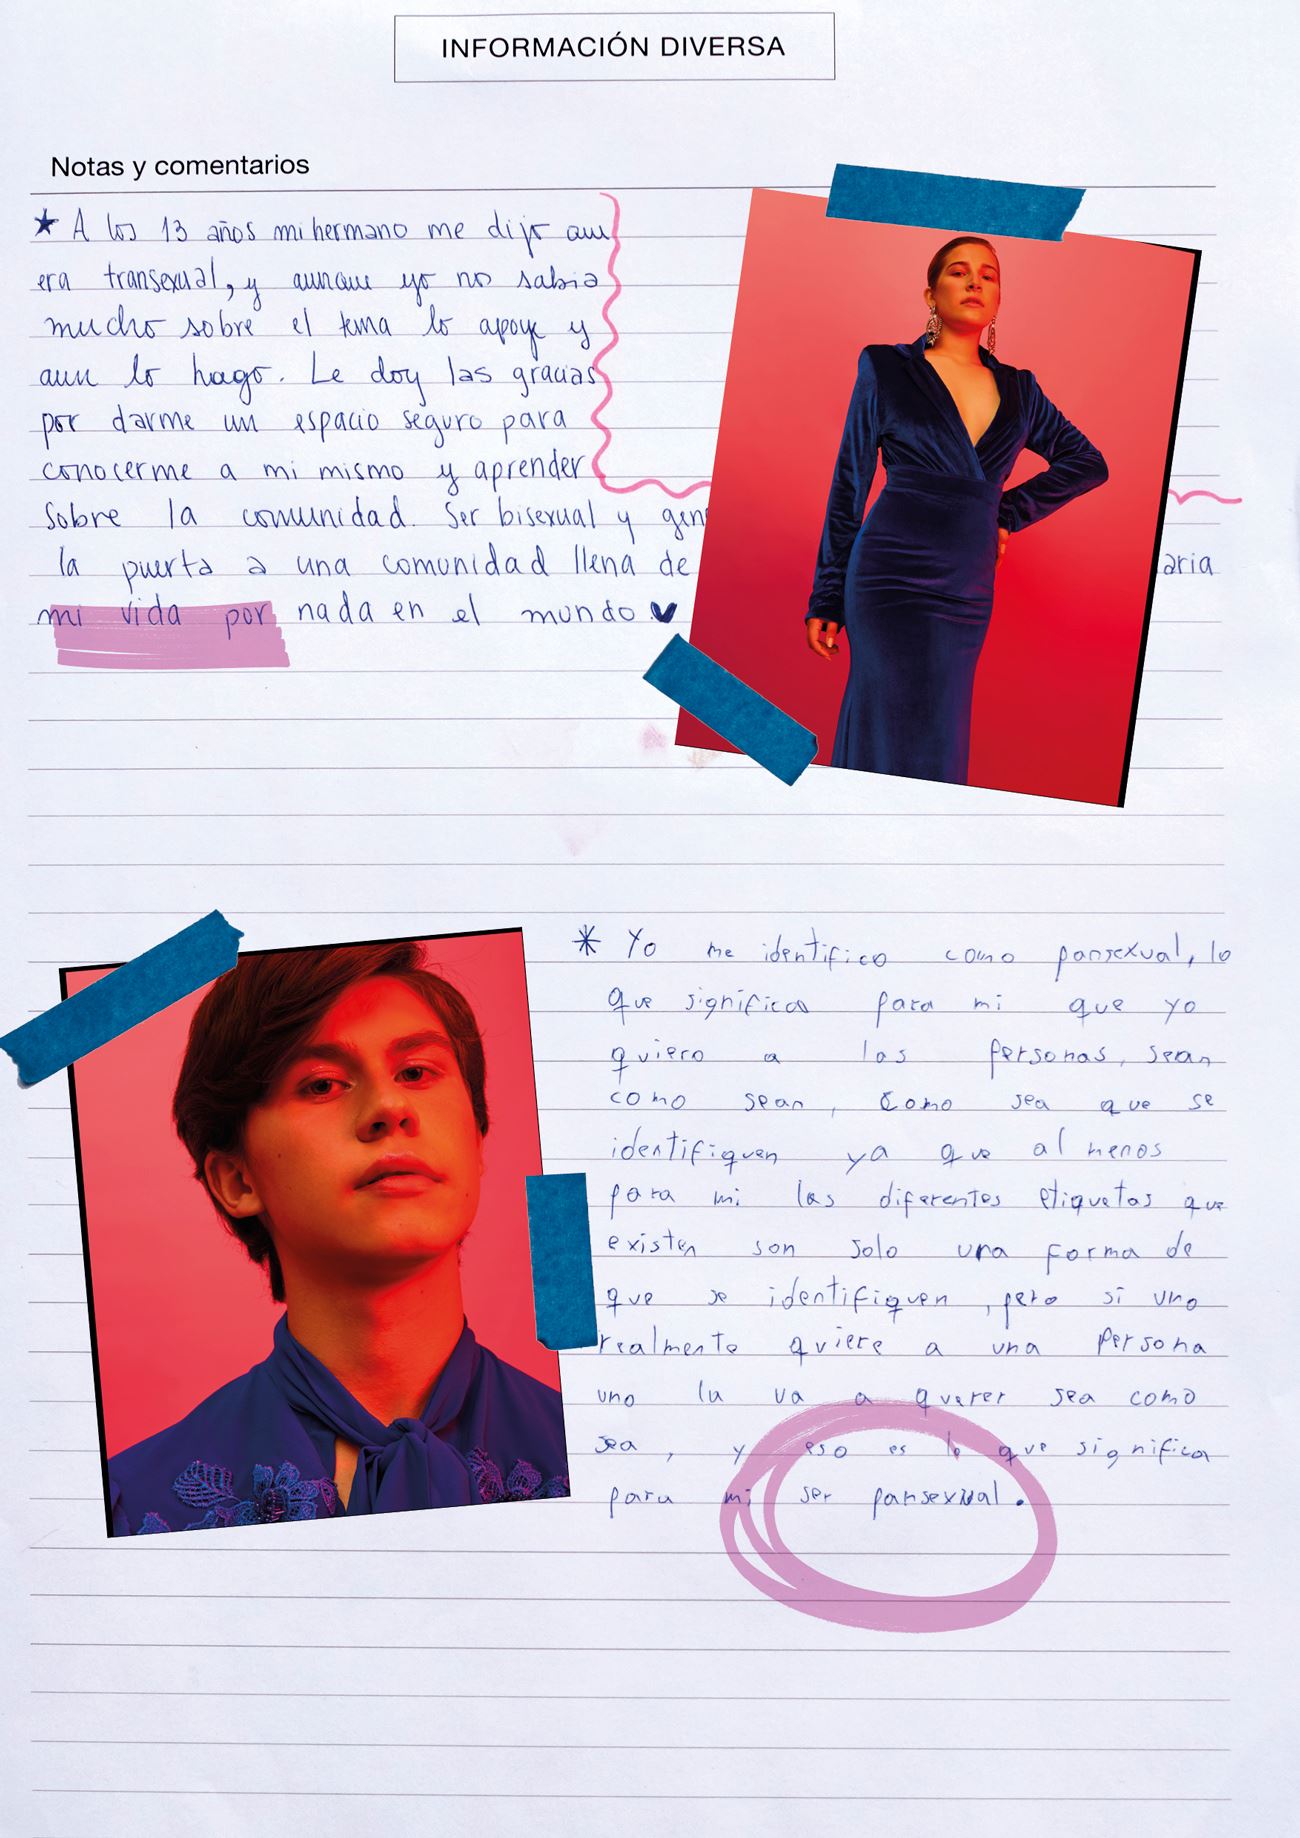 INFORMACIÓN DIVERSA
Notas y comentarios
★ A los 13 años mi hermano me dijo que
era transexual, y aunque yo no sabia
mucho sobre el tema lo apoye y
aun lo hago. Le doy las gracias
por darme un espacio seguro para
conocerme a mi mismo y aprender
sobre la comunidad. Ser bisexual y
la puerta a una comunidad llena de
mi vida por nada en el mundo ♥
* Yo me identifico como pansexual, lo
que significa para mi que yo
quiero a las personas, sean
como sean, como sea que se
identifiquen ya que al menos
para mi las diferentes etiquetas que
existen son solo una forma de
que se identifiquen, pero si uno
realmente quiere a una persona
uno la va a querer sea como
sea, y eso es lo que significa
para mi ser pansexual.